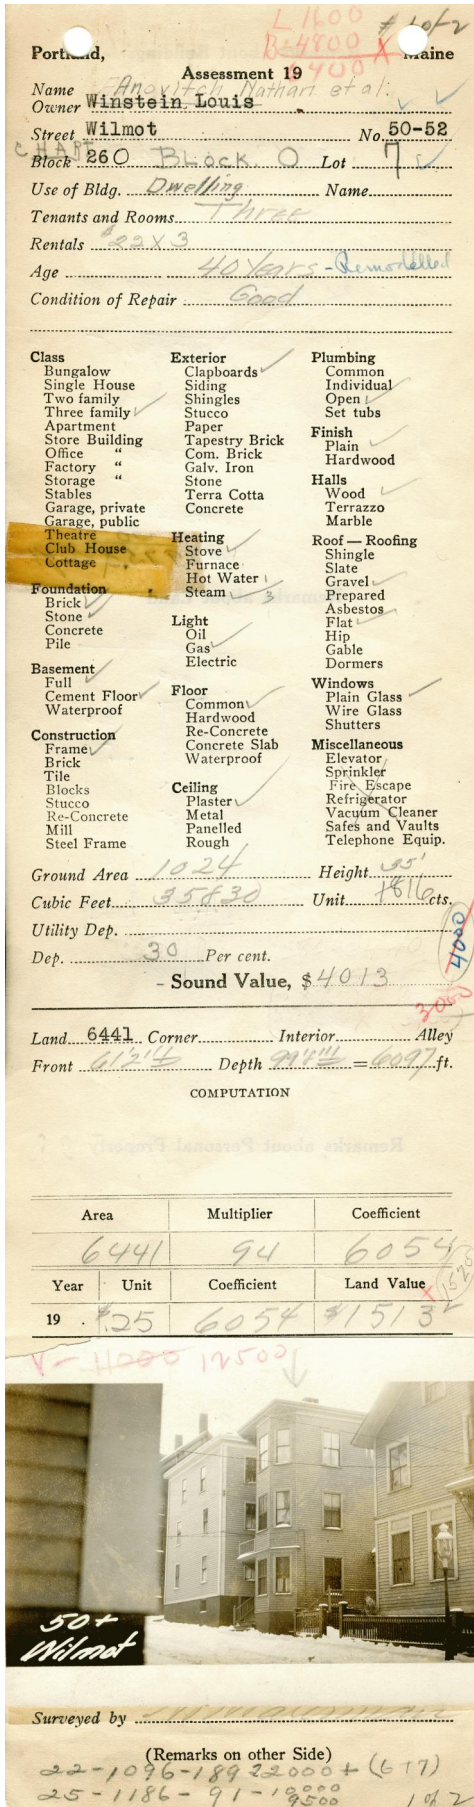 L 1600 # 1 of 2
B-4800 X
6400
Portland, Maine
Assessment 19
Name Anovitch Nathan et al.
Owner Winstein, Louis
Street Wilmot No. 50-52
CHART
Block 260 BLOCK O Lot 7
Use of Bldg. Dwelling Name
Tenants and Rooms Three
Rentals $22 X 3
Age 40 Years - Remodelled
Condition of Repair Good
Class
Bungalow
Single House
Two family
Three family
Apartment
Store Building
Office "
Factory "
Storage "
Stables
Garage, private
Garage, public
Theatre
Club House
Cottage
Foundation
Brick
Stone
Concrete
Pile
Basement
Full
Cement Floor
Waterproof
Construction
Frame
Brick
Tile
Blocks
Stucco
Re-Concrete
Mill
Steel Frame
Exterior
Clapboards
Siding
Shingles
Stucco
Paper
Tapestry Brick
Com. Brick
Galv. Iron
Stone
Terra Cotta
Concrete
Heating
Stove
Furnace
Hot Water 1
Steam 3
Light
Oil
Gas
Electric
Floor
Common
Hardwood
Re-Concrete
Concrete Slab
Waterproof
Ceiling
Plaster
Metal
Panelled
Rough
Plumbing
Common
Individual
Open
Set tubs
Finish
Plain
Hardwood
Halls
Wood
Terrazzo
Marble
Roof — Roofing
Shingle
Slate
Gravel
Prepared
Asbestos
Flat
Hip
Gable
Dormers
Windows
Plain Glass
Wire Glass
Shutters
Miscellaneous
Elevator
Sprinkler
Fire Escape
Refrigerator
Vacuum Cleaner
Safes and Vaults
Telephone Equip.
Ground Area 1024 Height 35'
Cubic Feet 35830 Unit 16 cts.
Utility Dep.
Dep. 30 Per cent.
4000
- Sound Value, $ 4013
3000
Land 6441 Corner Interior Alley
Front Depth = 6097 ft.
COMPUTATION
Area Multiplier Coefficient
6441 94 6054
Year Unit Coefficient Land Value
1520
19 . $.25 6054 $1513
V- 11000 12500
50+
Wilmot
Surveyed by
(Remarks on other Side)
22-1096-189 22000 + (6+7)
25-1186-91-10000
9500 1 of 2